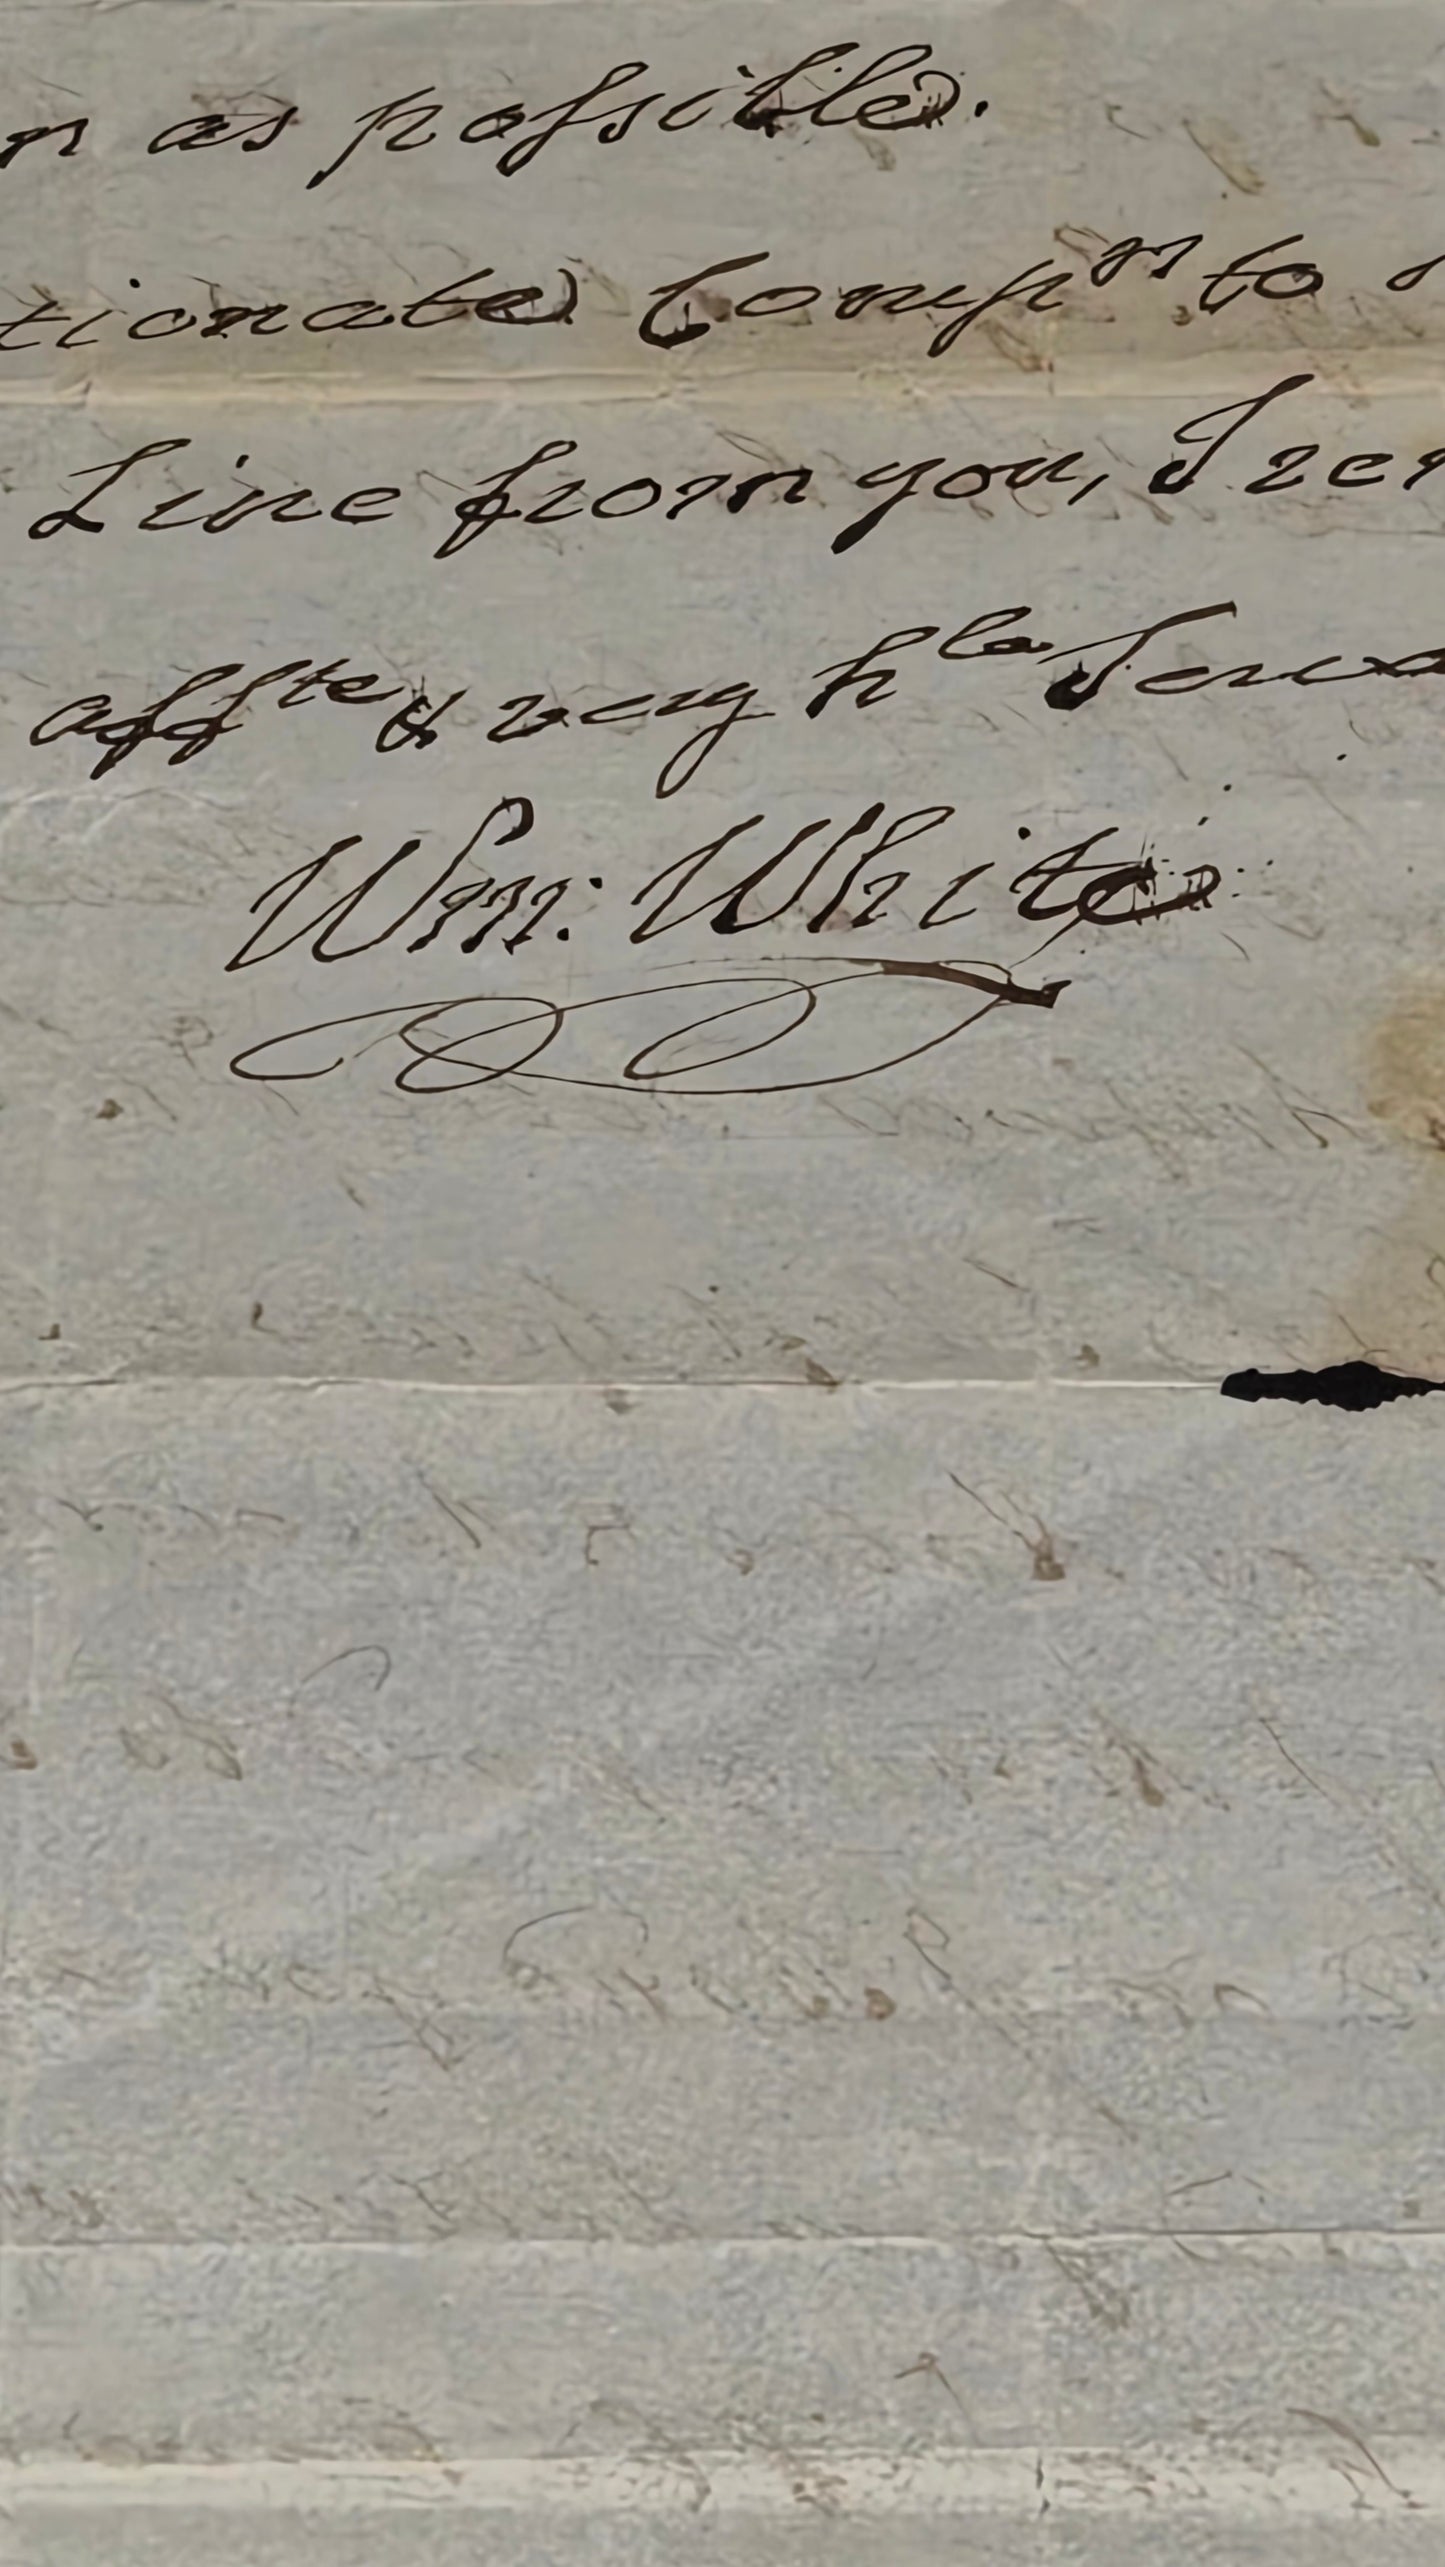 n as possible.
tionate Compts to
Line from you, I rem
affte & very hle Serva
Wm: White